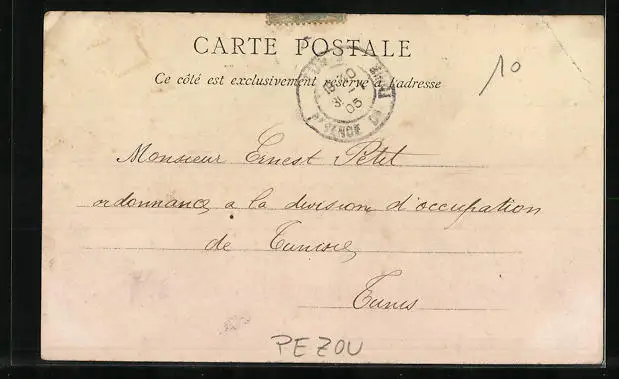 CARTE POSTALE
Ce côté est exclusivement réservé à l'adresse
10
05
Monsieur Ernest Petit
ordonnance a la division d'occupation
de Tunisie
Tunis
PEZOU